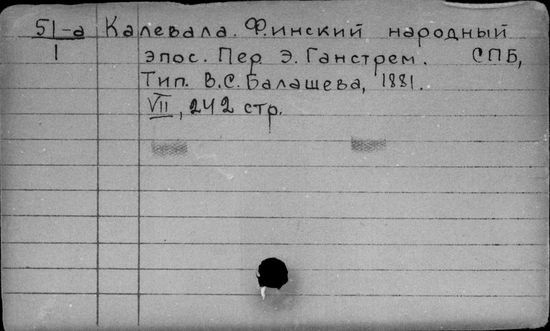 51-а Калевала. Финский народный
1 эпос. Пер Э. Ганстрем. СПБ,
Тип. В.С. Балашева, 1881.
VII, 242 стр.